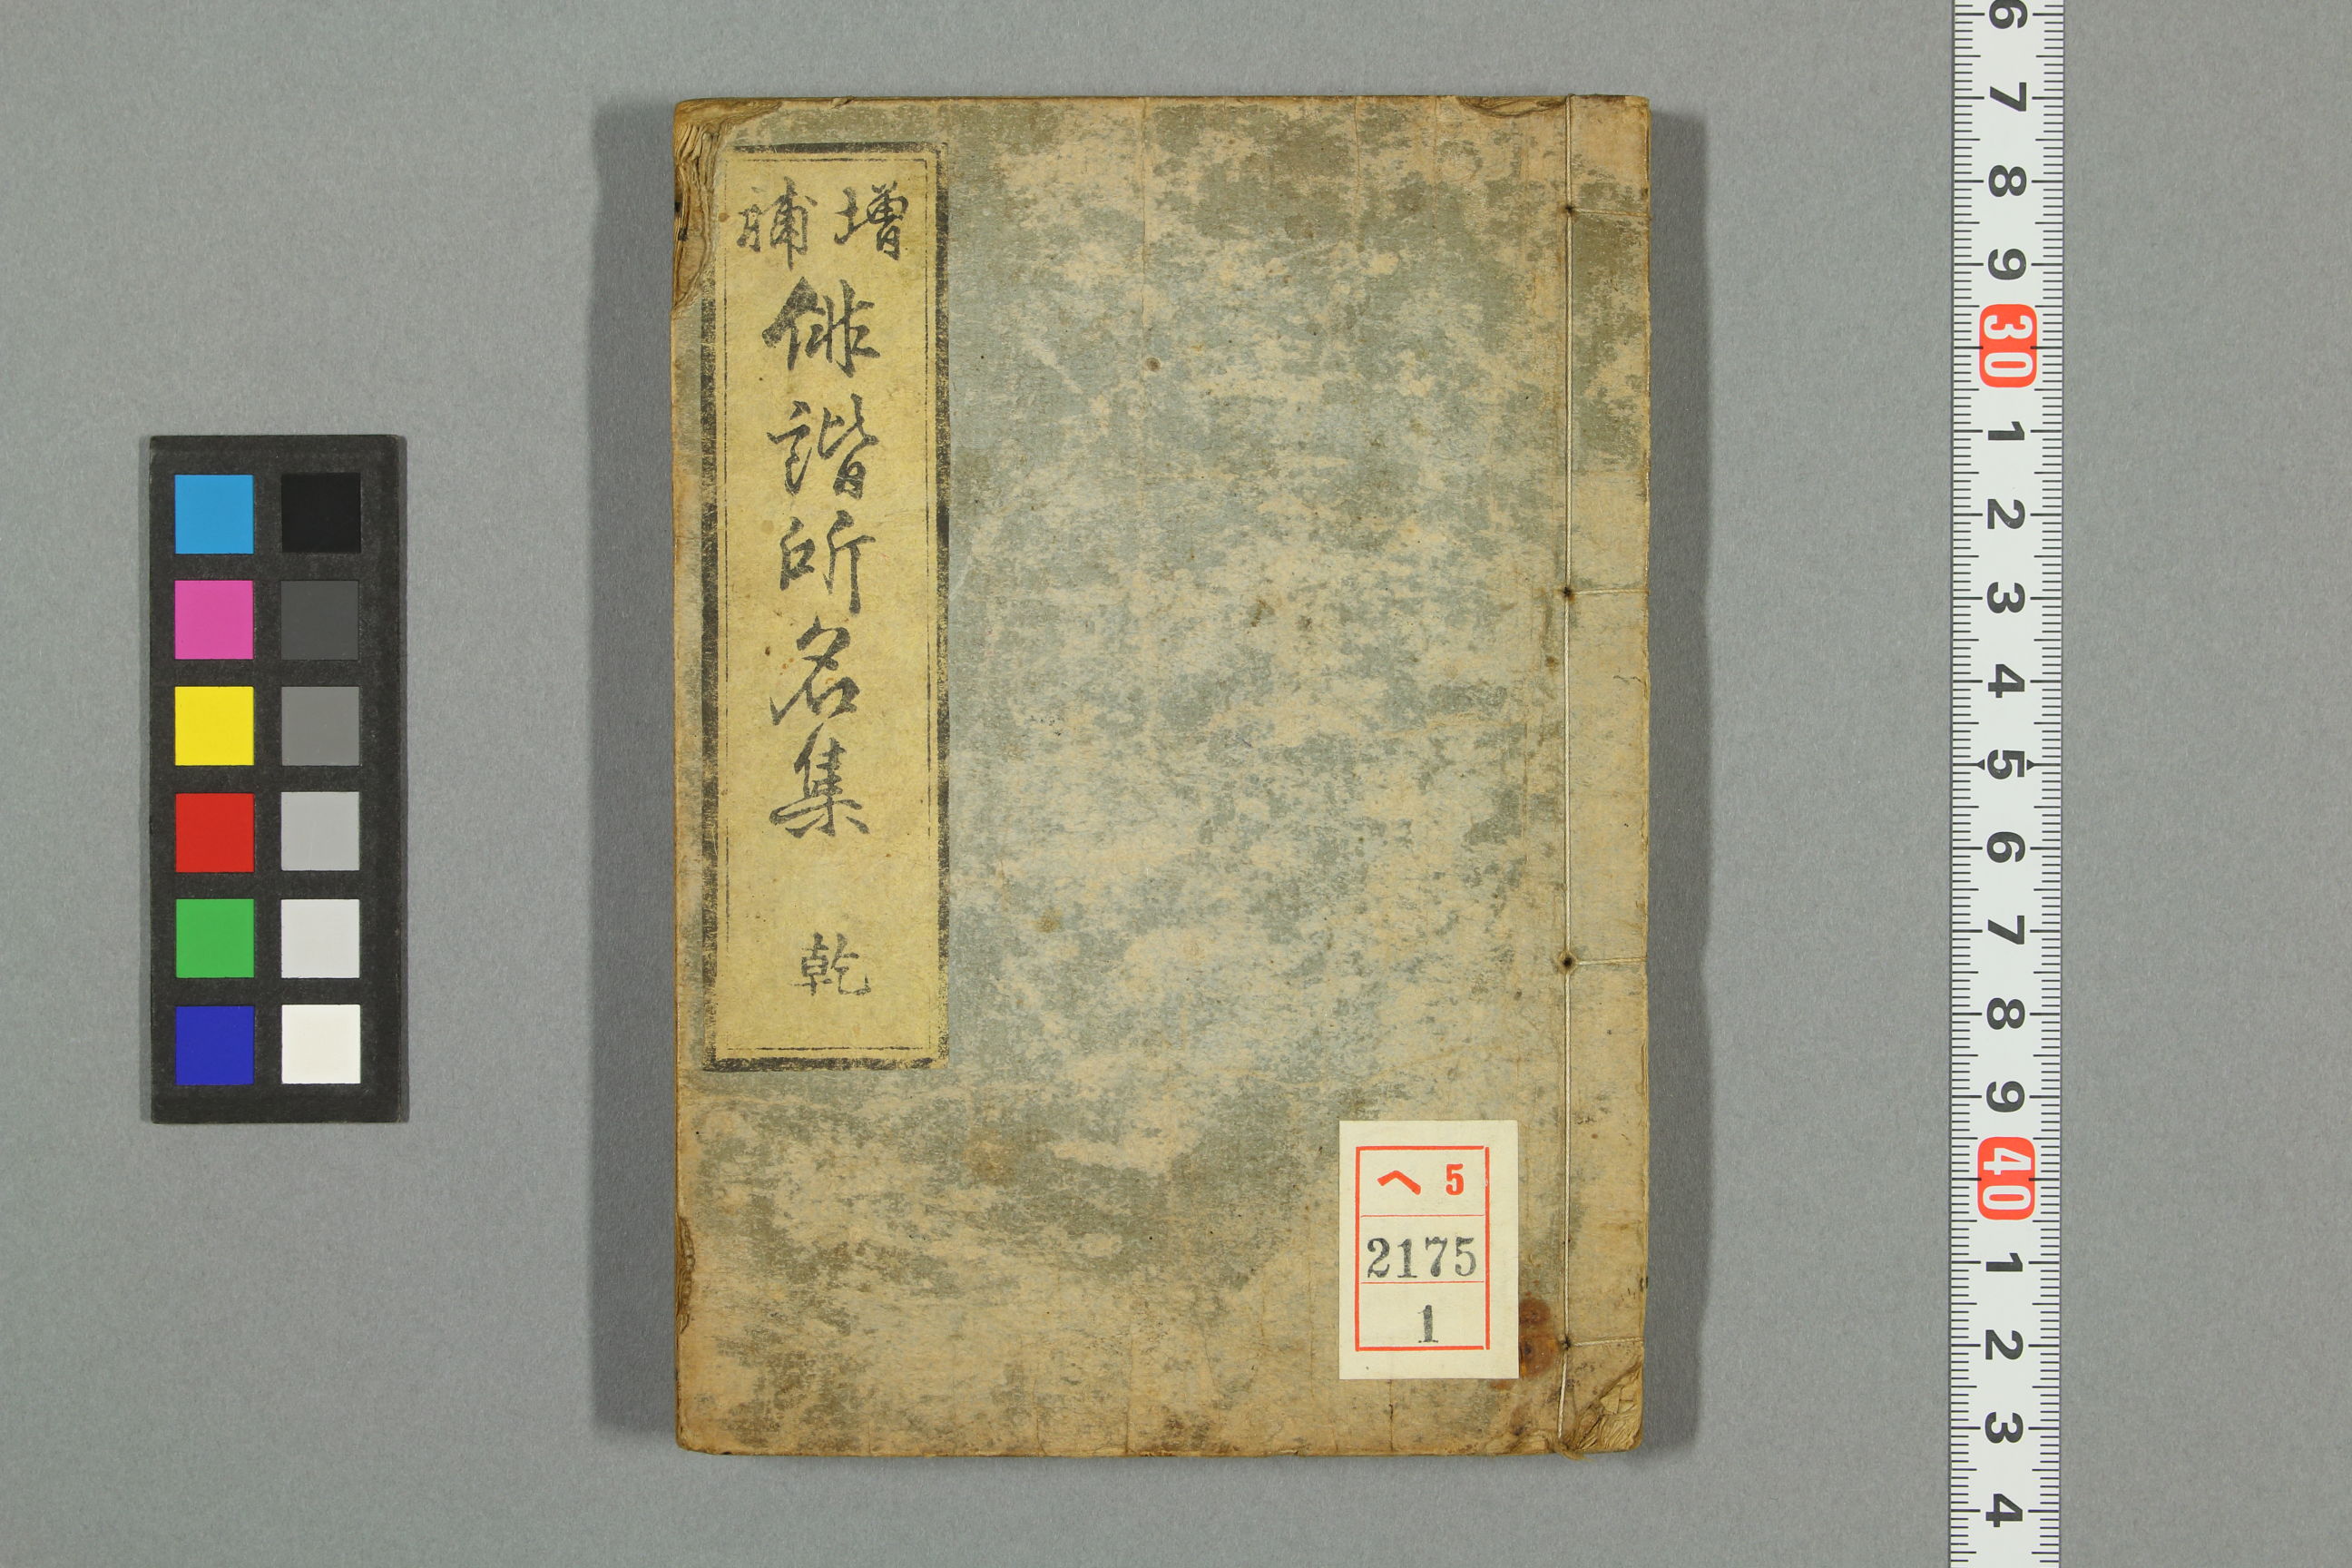 増補
俳諧所名集
乾
ヘ 5
2175
1
6 7 8 9 30 1 2 3 4 5 6 7 8 9 40 1 2 3 4